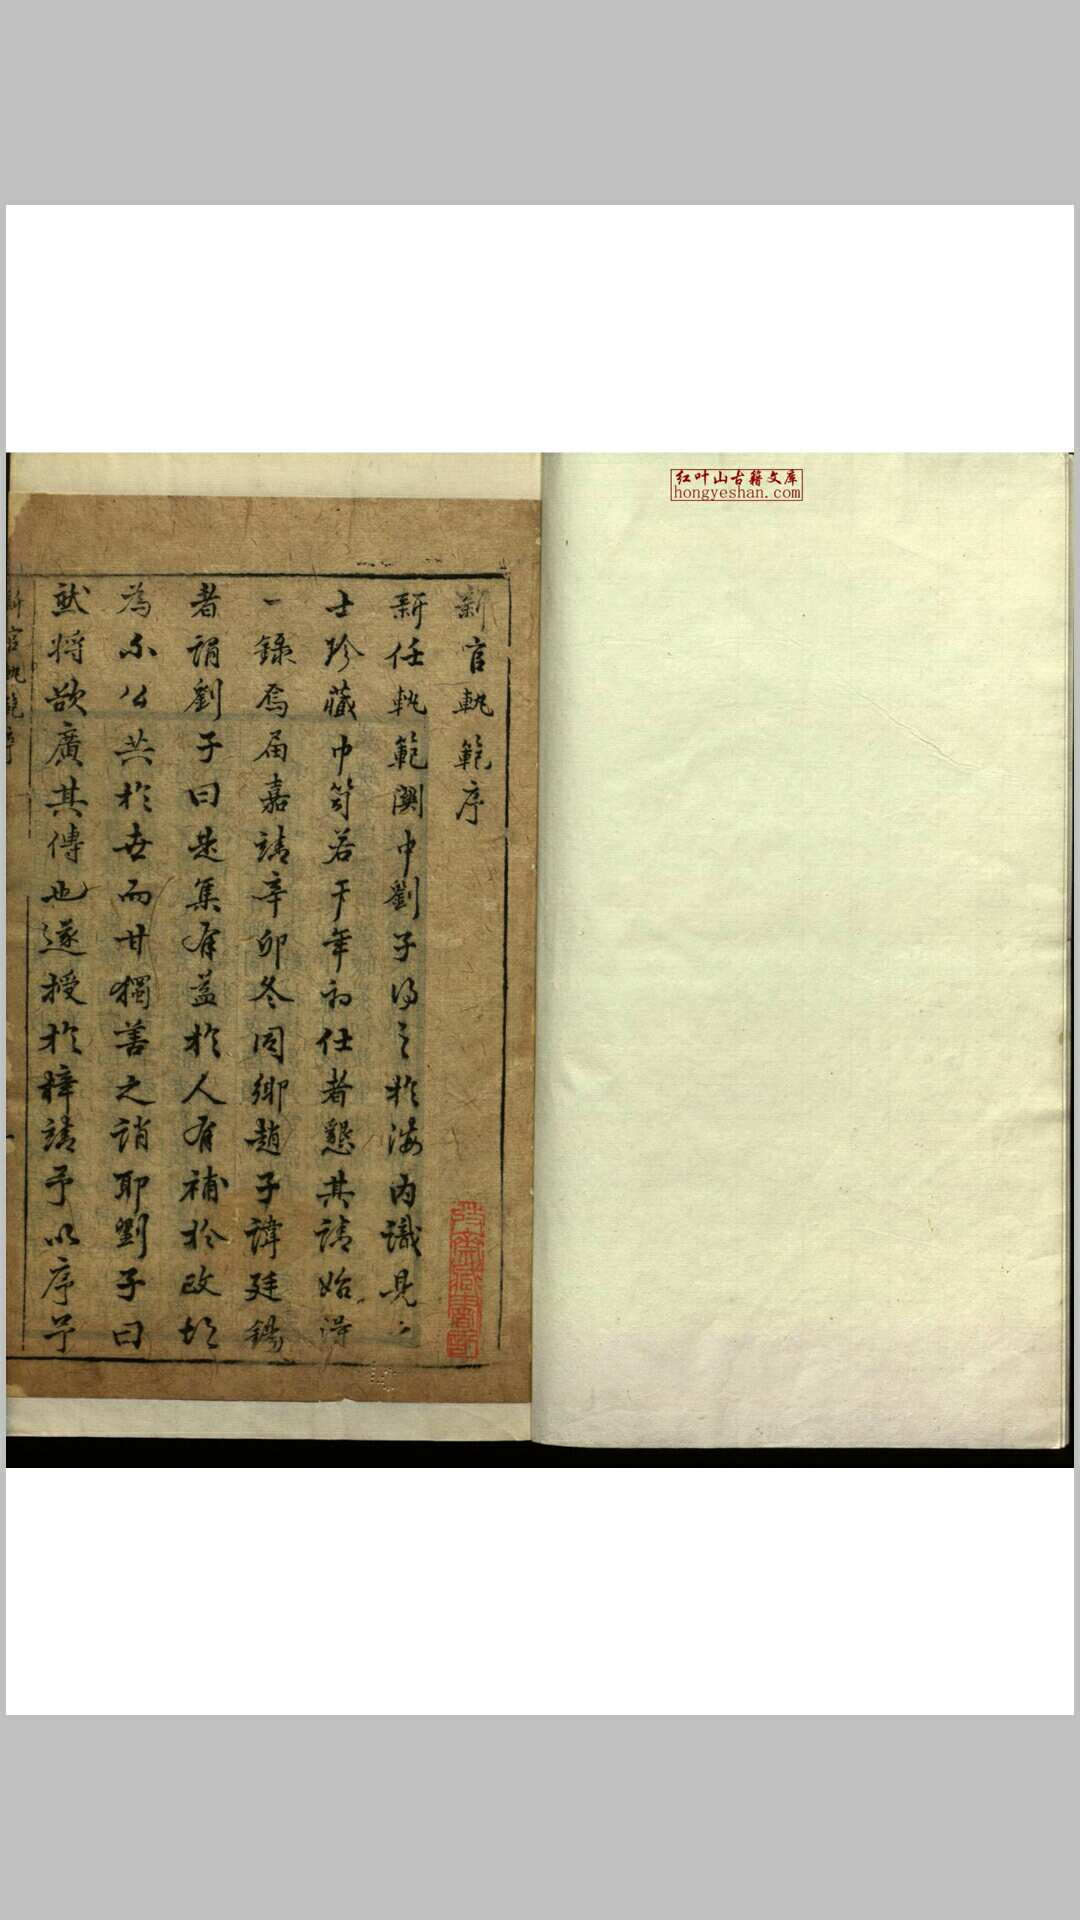 红叶山古籍文库
hongyeshan.com
新官軌範序
新任軌範関中劉子得之於海内識見之
士珍藏巾笥若干年初仕者懇其請始得
一錄焉届嘉靖辛卯冬同鄉趙子諱廷錫
者謂劉子曰是集有益於人有補於政胡
為不公共於世而甘獨善之誚耶劉子曰
然將欲廣其傳也遂授於梓請予以序予
新官軌範序